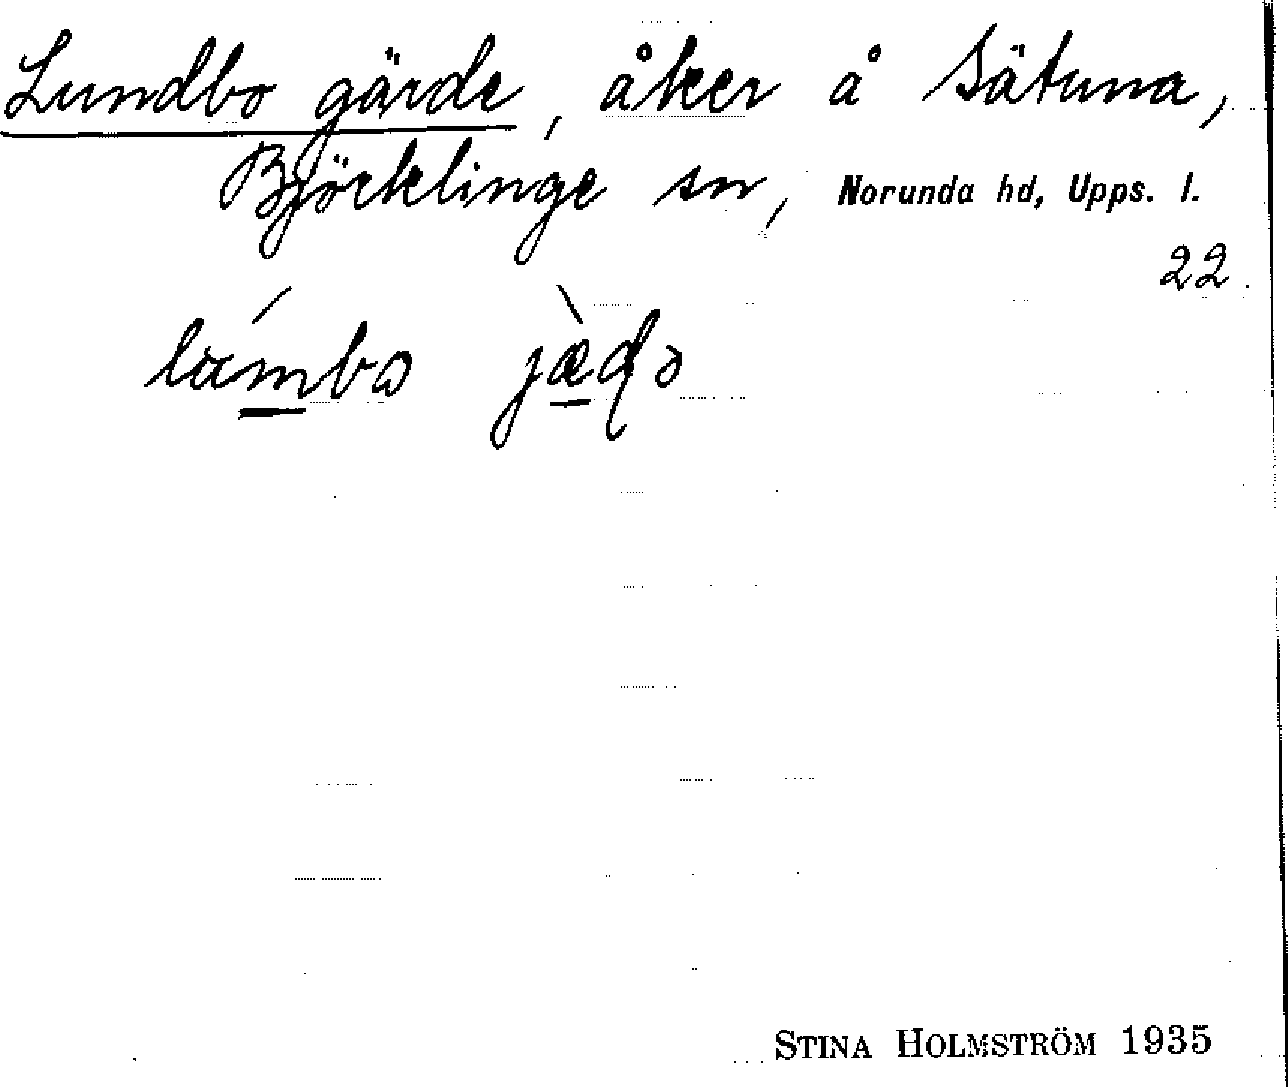 Lundbo gärde, åker å Sätuna,
Björklinge sn, Norunda hd, Upps. l.
22.
STINA HOLMSTRÖM 1935